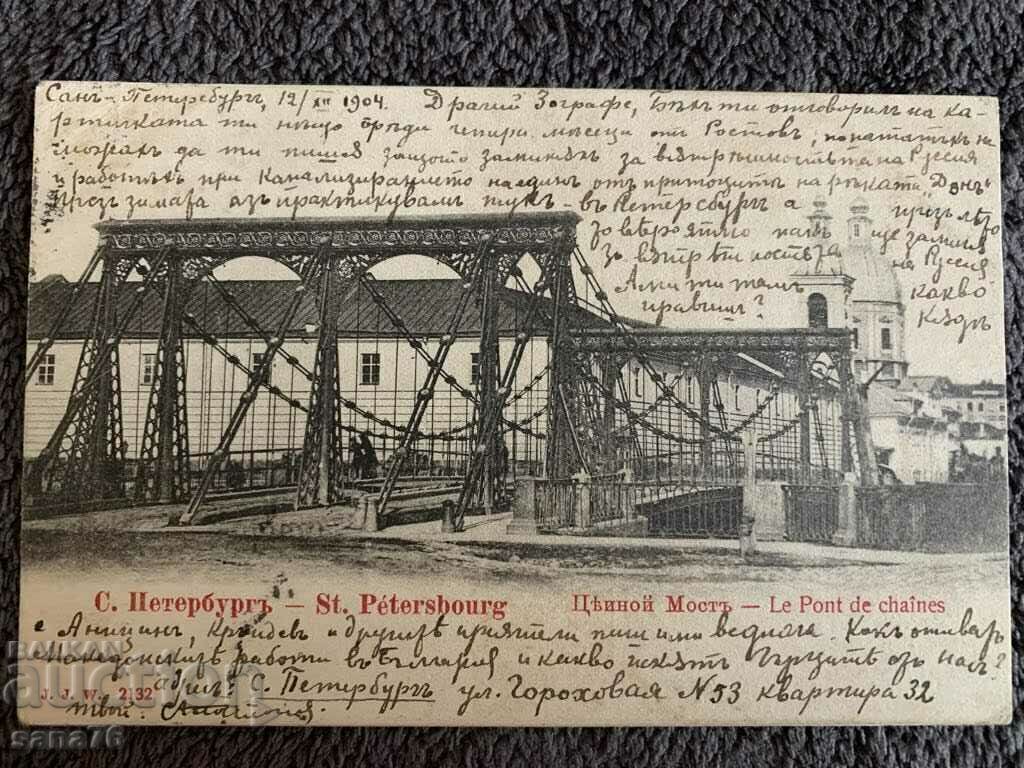 Санъ-Петеребургъ, 12/XII 1904. Драгий Зографе, Бѣхъ ти отговорилъ на ка-
ртичката ти нѣщо преди четири мѣсеци отъ Ростовъ, по нататъкъ не
можахъ да ти пиша защото заминахъ за вѫтрѣшностьта на Руссия
и работѣхъ при канализирането на единъ отъ притоцитѣ на рѣката „Донъ“
Презъ зимата азъ практикувамъ тукъ - въ Петерсбургъ а презъ лѣто
то вѣроятно пакъ ще замина
за вѫтрѣшностьта на Руссия
Ами ти тамъ какво
правиш? кѫдѣ
С. Петербургъ — St. Pétersbourg Цѣпной Мостъ — Le Pont de chaînes
е Анишин, и другитѣ приятели пиши ми веднага. Какъ отиватъ
македонскитѣ работи въ България и какво искатъ Гърцитѣ отъ насъ?
J. J. W. 2132 С. Петербургъ ул. Гороховая N 53 квартира 32
Твой:
BALKAN
auction
sana76